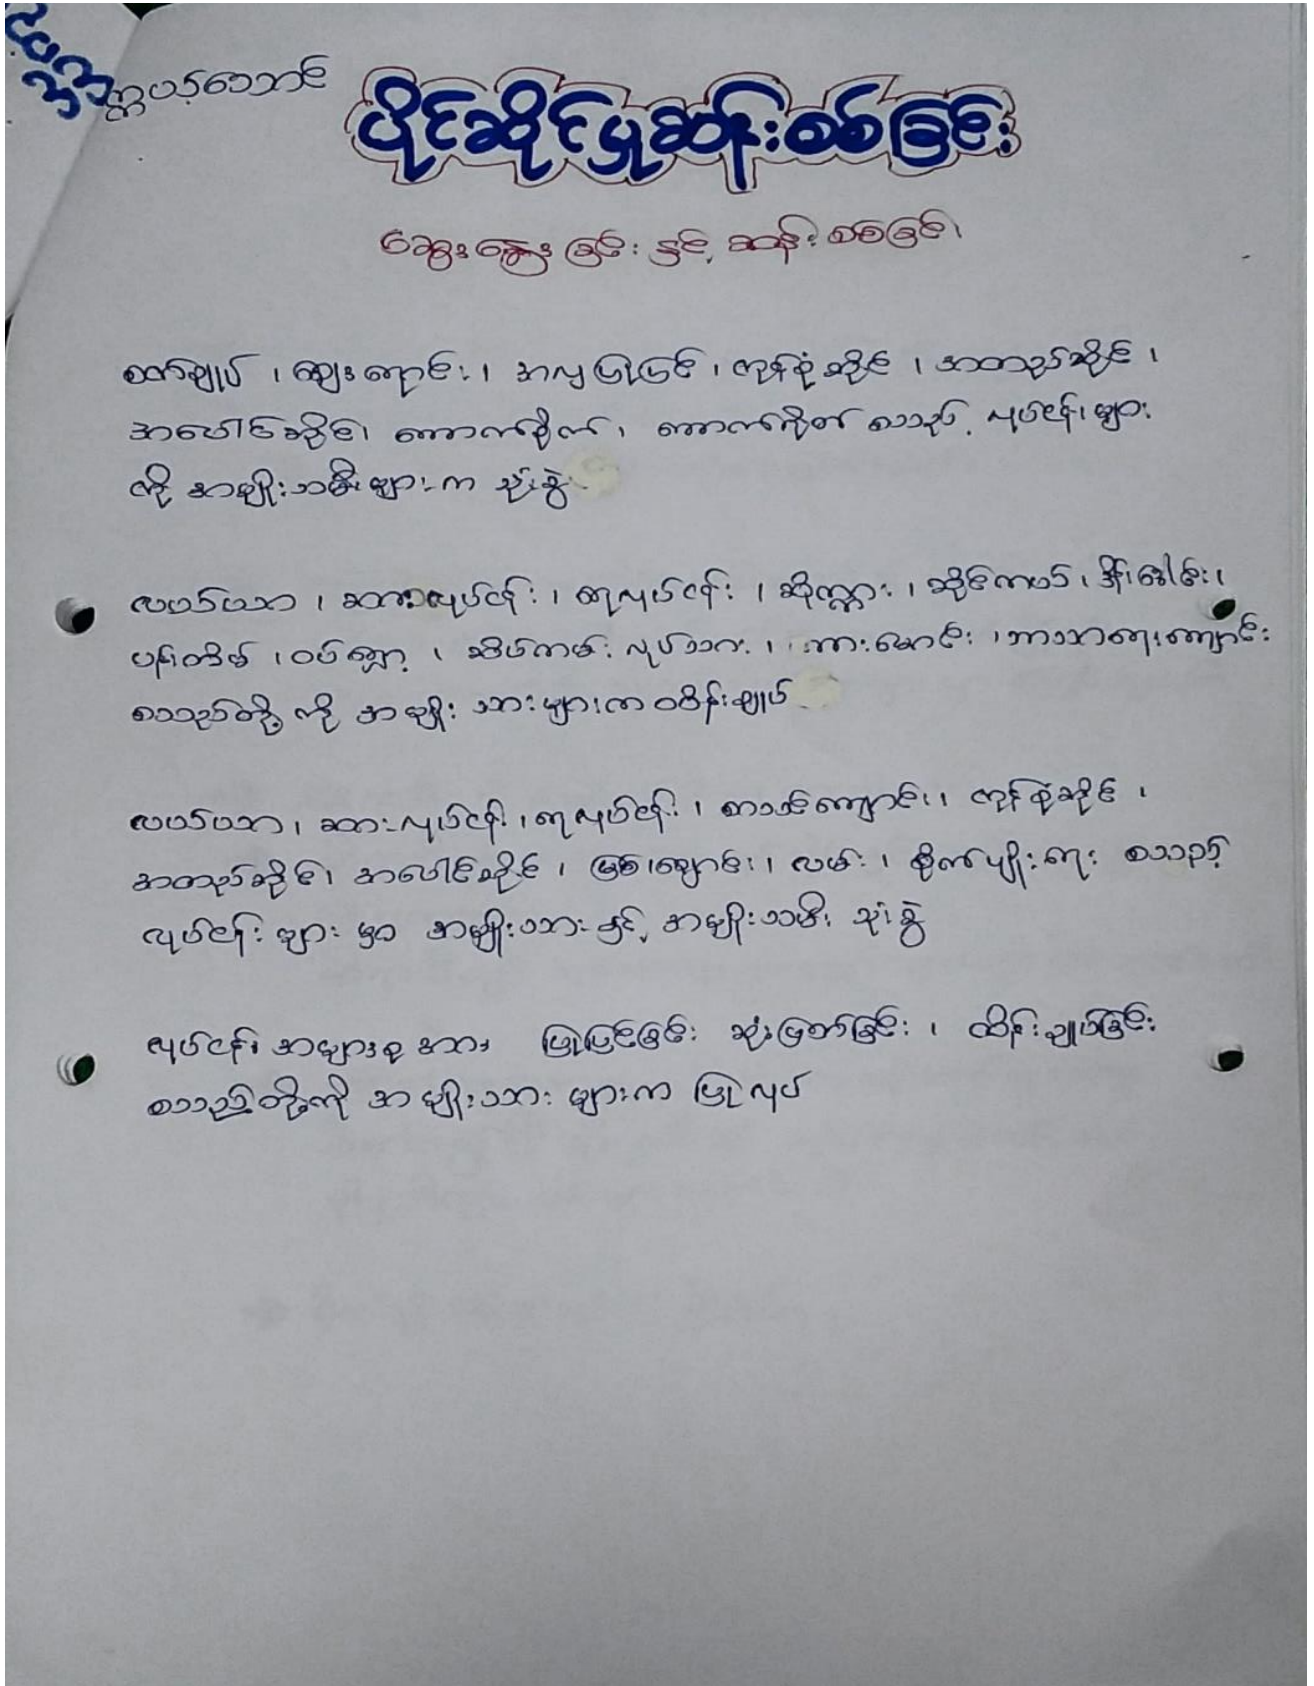 ကွယ့်သောင်
ပိုင်ဆိုင်မှုဆန်းစစ်ခြင်း
ဆွေးနွေးခြင်းနှင့် ဆန်းစစ်ခြင်း
စက်ချုပ်၊ ဈေးရောင်း၊ အလှပြုပြင်၊ ကုန်စုံဆိုင်၊ အထည်ဆိုင်၊
အပေါင်ဆိုင်၊ ကောက်စိုက်၊ ကောက်ရိတ် စသည့် လုပ်ငန်းများ
ကို အမျိုးသမီးများက သုံးစွဲ
လယ်ယာ၊ ဆားလုပ်ငန်း၊ ရေလုပ်ငန်း၊ ဆိုက္ကား၊ ဆိုင်ကယ်၊ အိမ်ခေါင်း၊
ပန်းတိမ်၊ ဝပ်ရှော့၊ ဆိပ်ကမ်းလုပ်သား၊ ကားမောင်း၊ ဘာသာရေးကျောင်း
စသည်တို့ကို အမျိုးသားများက ထိန်းချုပ်
လယ်ယာ၊ ဆားလုပ်ငန်း၊ ရေလုပ်ငန်း၊ စာသင်ကျောင်း၊ ကုန်စုံဆိုင်၊
အထည်ဆိုင်၊ အပေါင်ဆိုင်၊ မြစ်ချောင်း၊ လမ်း၊ စိုက်ပျိုးရေး စသည့်
လုပ်ငန်းများမှာ အမျိုးသားနှင့် အမျိုးသမီး သုံးစွဲ
လုပ်ငန်း အများစုအား ပြုပြင်ခြင်း ဆုံးဖြတ်ခြင်း၊ ထိန်းချုပ်ခြင်း
စသည်တို့ကို အမျိုးသားများက ပြုလုပ်